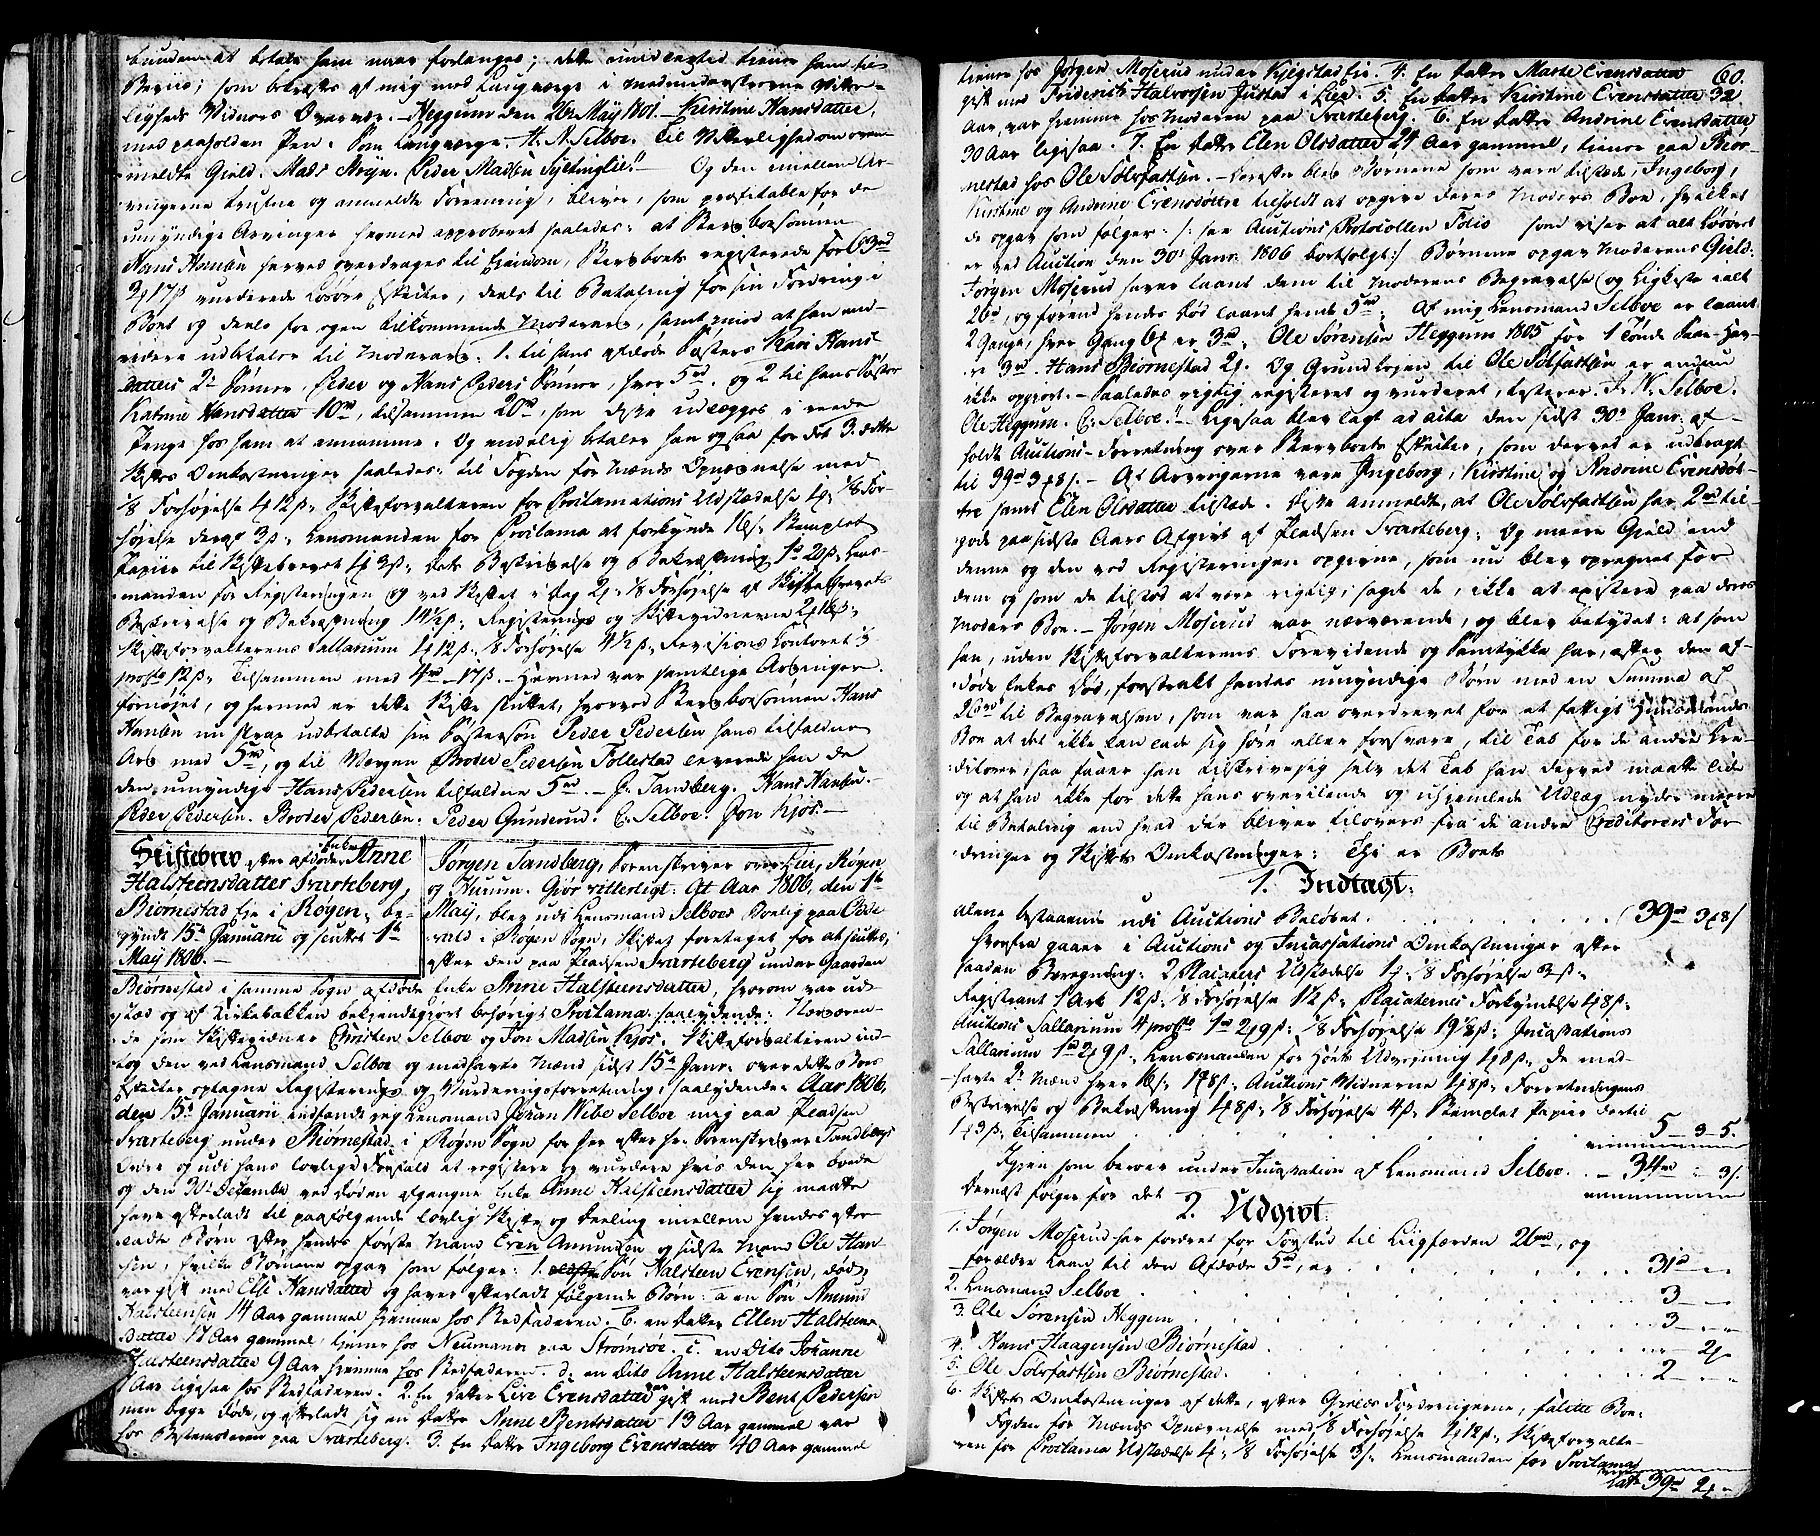 bunden at betale ham naar forlanges; dette imidlertid tiener ham til
Beviis; som bekræftes af mig med Laugværge i nedenunderskrevne Vitter-
ligheds Vidners Overvær. Heggum den 26de Maij 1801. Kirstine Hansdatter,
med paaholden Pen. Som Laugværge. H. N. Selboe. Til Vitterlighed om oven
meldte Gield. Mads Peder Madsen Og den imellem Ar-
vingerne trufne og anmeldte Forening, bliver, som profitable for de
umyndige Arvinger hermed approberet saaledes: at Sterbboesønnen
Hans Hansen herved overdrages til Eiendom, Sterbboets registrerede for 63rd
2 17ß vurderede Løsøre Effecter, deels til Betaling for sin Fordring i
Boet og deels for egen tilkommende Moderarv, samt imod at han vi-
dere udbetaler til Moderarv: 1. til hans afdøde Søsters Kari Hans
datters 2de Sønner, Peder og Hans Peders Sønner, hver 5rd. og 2 til hans Søster
Katrine Hansdatter 10rd, tilsammen 20rd, som disse udlægges i reede
Penge hos ham at annamme. Og endelig betaler han ogsaa for det 3. dette
Skiftes Omkostninger saaledes: til Fogden for Mænds Opnævnelse med
1/8 Forhøjelse 12ß, Skifteforvalteren for Proclamations Udstædelse 1/8 For-
højelse deraf 3ß, Lensmanden for Proclama at forkynde 16ß. Stemplet
Papiir til Skiftebrevet 3ß, dets Beskrivelse og Bekræftning 1rd 20ß, Lens-
manden for Registeringen og ved Skiftet i Dag 2, 1/8 Forhøjelse af Skiftebrevets
Beskrivelse og Bekræftning 14½ß, Registerings og Skiftevidnerne 2 16ß,
Skifteforvalterens Sallarium 12ß, 1/8 Forhøjelse 4½ß, Revisions Contoret
12ß, Tilsammen med 4rd 17ß. Hermed var samtlige Arvinger
fornøjet, og hermed er dette Skifte sluttet, hvorved Sterbboesønnen Hans
Hansen nu strax udbetalte sin Søstersøn Peder Pedersen hans tilfaldne
Arv med 5rd, og til Værgen Broder Pedersen Follestad leverede han de
den umyndige Hans Pedersen tilfaldne 5rd. J. Tandberg. Hans Hansen.
Peder Pedersen. Broder Pedersen. Peder Gunderud. C. Selboe. Jon Kjos.
Skiftebrev efter afdøde Enke Anne
Halsteensdatter Svarteberg,
Biørnestad Eje i Røgen, be-
gyndt 15de Januarii og sluttet 1te
Maij 1806.
Jørgen Tandberg, Sorenskriver over Lier, Røgen
og Hurum. Giør vitterligt: At Aar 1806, den 1te
Maij, blev udi Lensmand Selboes Boelig paa Odde
vald i Røgen Sogn, Skiftet foretaget for at slutte,
efter den paa Pladsen Svarteberg under Gaarden
Biørnestad i samme Sogn afdøde Enke Anne Halsteensdatter, hvorom var ud-
stæd og af Kirkebakken bekiendtgiort behørigt Proclama saalydende: Nærværen-
de som Skiftevidner Christen Selboe og Jon Madsen Kjos. Skifteforvalteren ind-
tog den ved Lensmand Selboe og medhavte Mænd sidst 15de Janr. over dette Boes
Effecter optagne Registerings og Vurderingsforretning, saalydende: Aar 1806,
den 15de Januarii indfandt jeg Lensmand Johan Wibe Selboe mig paa Pladsen
Svarteberg under Biørnestad i Røgen Sogn for her efter Hr. Sorenskriver Tandbergs
Ordre og udi hans lovlige Forfald at registere og vurdere hvis den her boede
og den 30te Decembr. ved Døden afgangne Enke Anne Halsteensdatter sig maatte
have efterladt til paafølgende lovlig Skifte og Deeling imellem hendes efter
ladte Børn efter hendes første Mand Even Amundsen og sidste Mand Ole Han-
sen, hvilke Børnene opgav som følger: 1. Søn Halsteen Evensen, død,
var gift med Else Hansdatter og haver efterladt følgende Børn: a en Søn Amund
Halsteensen 14 Aar gammel hjemme hos Stedfaderen. b. en datter Ellen Halsteens
datter 17 Aar gammel, tjener hos Neumanns paa Strømsøe. c. en Dito Johanne
Halsteensdatter 9 Aar hjemme hos Stedfaderen. d. en Dito Anne Halsteensdatter
Aar ligesaa hos Stedfaderen. 2. En datter Live Evensdatter gift med Bent Pedersen
men begge døde, og efterladt sig en datter Anne Bentsdatter 13 Aar gammel var
hos Bestemoderen paa Svarteberg. 3. En datter Ingeborg Evensdatter 40 Aar gammel
60.
tiener hos Jørgen Moserud under Kjegstad Eje. 4. En datter Marte Evensdatter
gift med Friderich Halvorsen Justad i Lier. 5. En datter Kirstine Evensdatter 32
Aar, var hjemme hos Moderen paa Svarteberg. 6. En datter Andrine Evensdatter
30 Aar ligesaa. 7. En datter Elen Olsdatter 24 Aar gammel, tiener paa Biør-
nestad hos Ole Solofastsen. Derefter blev Børnene som vare tilstede, Ingeborg,
Kirstine og Andrine Evensdøttre tilholdt at opgive deres Moders Boe, hvilket
de opgav som følger: /: see Auctions Protocollen Folio som viser at alt Løsøret
er ved Auction den 30te Janr. 1806 bortsolgt :/ Børnene opgav Moderens Gield:
Jørgen Moserud haver laant dem til Moderens Begravelse og Ligkiste i alt
26rd, og førend hendes Død laant hende 5rd, Af mig Lensmand Selboe er laant
2 Gange, hver Gang er 3rd, Ole Sørensen Heggum 1805 for 1 Tønde Sæe-Hav-
re 3rd, Hans Biørnestad 2. Og Grundlejen til Ole Solfastsen er endnu
ikke opgiort. Saaledes rigtig registeret og vurderet, testerer. J. W. Selboe.
Ole Heggum. C. Selboe. Ligesaa blev lagt ad acta den sidst 30te Janr. af-
holdt Auctions-Forretning over Sterbboets Effecter, som derved er udbragt
til 39rd 3 8ß. Af Arvingerne vare Ingeborg, Kirstine og Andrine Evensdøt-
tre samt Elen Olsdatter tilstede. Disse anmeldte, at Ole Solofastsen har 2rd til-
gode paa sidste Aars Afgivt af Pladsen Svarteberg, Og meere Gield, end
denne og den ved Registeringen opgivne, som nu blev opregnet for
dem og som de tilstod at være rigtig, sagde de, ikke at existere paa deres
Moders Boe. Jørgen Moserud var nærværende, og blev betydet: at som
han, uden Skifteforvalterens Forevidende og Samtykke har, efter den af-
døde Enkes Død, forstrakt hendes umyndige Børn med en Summa af
26rd til Begravelsen, som var saa overdrevet for et fattigt Huusmands
Boe at det ikke kan lade sig høre eller forsvare, til Tab for de andre Cre-
ditorer; saa faaer han tilskrive sig selv det Tab han derved maatte lide
og at han ikke for dette hans overilende og uhjemlede Udlæg nyder meere
til Betaling end hvad der bliver tilovers fra de andre Creditorers For
dringer og Skiftets Omkostninger: Thi er Boets
1. Indtægt:
alene bestaaende udi Auctions Beløbet . . . . . 39rd 3 8ß
hvorfra gaaer i Auctions og Incassations Omkostninger efter
saadan Beregning: 2 Placaters Udstædelse 1 1/8 Forhøjelse 3ß,
Registrant 1 Ark 12ß, 1/8 Forhøjelse 1½ß, Placaternes Forkyndelse 1 8ß,
Auctions Sallarium 4 1rd 2 9ß, 1/8 Forhøjelse 19⅛ß, Incassations
Sallarium 1rd 2 9ß, Lensmanden for Udvisning 1 8ß, De med-
havte 2de Mænd hver 16ß, 1 8ß, Auctions Vidnerne 1 8ß, Forretningens
Beskrivelse og Bekræftning 1 8ß, 1/8 Forhøjelse 4ß, Stemplet Papiir dertil
1 3ß, Tilsammen . . . . . 5 3 5.
Igjen som beroer under Incassation af Lensmand Selboe . . 34rd - 3ß.
Dernæst følger for det
2. Udgivt:
1. Jørgen Moserud har fordret for Forskud til Liigfærden 26rd, og
forældet Laan til den Afdøde 5rd, er . . . . . 31rd
2. Lensmand Selboe . . . . . 3
3. Ole Sørensen Heggum . . . . . 3
4. Hans Haagensen Biørnestad . . . . . 2
5. Ole Solofastsen Biørnestad . . . . . 2
6. Skiftets Omkostninger af dette, efter Gields Fordringerne, falitte Boe:
Fogden for Mænds Opnævnelse med 1/8 Forhøjelse 12ß, Skifteforvalte-
ren for Proclama Udstædelse 1/8 Forhøjelse 3ß, Lensmanden for Proclama
Lat. 39rd 2